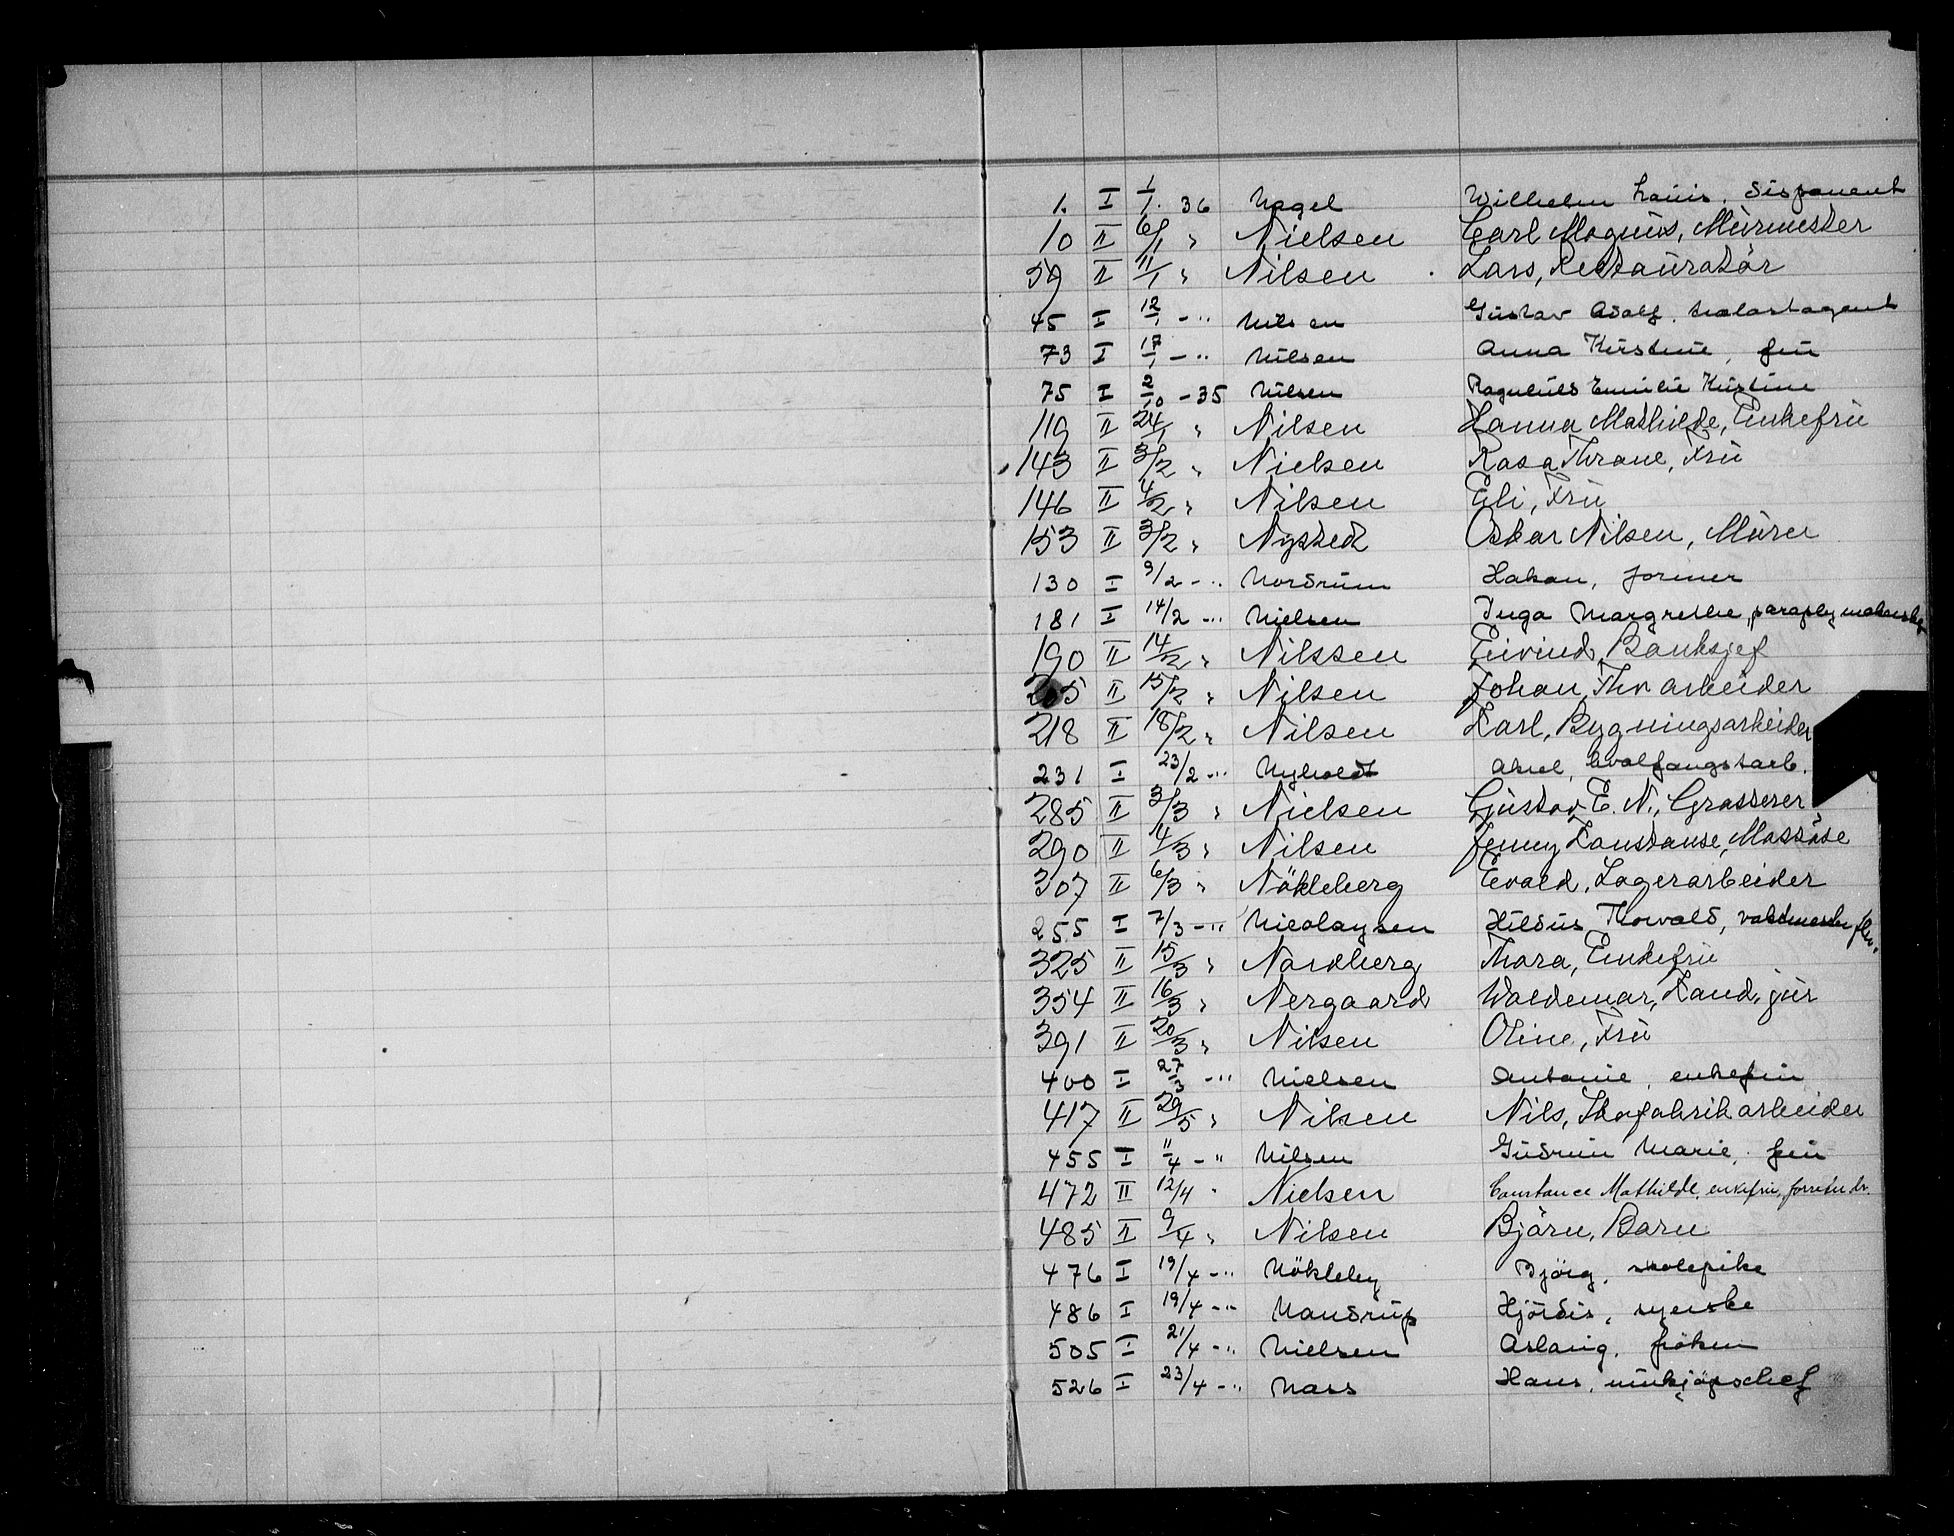 1. I 1/1. 36 Nagel Wilhelm Louis. disponent
10 II 6/1 " Nielsen Carl Magnus, Murmester
39 II 11/1 " Nilsen Lars, Restauratør
45 I 12/1 - " Nilsen Gustav Adolf.
73 I 17/1 - " Nilsen Anna Kirstine, fru
75 I 2/10 - 35 Nilsen Ragnhild Emilie Kristine
119 II 24/1 " Nilsen Hanna Mathilde, Enkefrü
143 II 3/2 " Nielsen Rosa Thrane, Frü
146 II 4/2 " Nilsen Eli, Frü
153 II 3/2 " Nysted Oskar Nilsen, Murer
130 I 9/2 - " Nordrum Hakon, former
181 I 14/2 - " Nielsen Inga Margrethe,
190 II 14/2 " Nilssen Eivind, Banksjef
205 II 15/2 " Nilsen Johan, Thv arbeider
218 II 18/2 " Nilsen Karl, Bygningsarbeider
231 I 23/2 - " Nyholdt Aksel, hvalfangstarb.
285 II 3/3 " Nielsen Gustav E. N., Grosserer
290 II 4/3 " Nilsen Jenny Konstanse, Massöse
307 II 6/3 " Nökleberg Evald, Lagerarbeider
255 I 7/3 - " Nicolaysen Hildus Thorvald,
325 II 15/3 " Nordberg Thora, Enkefrü
354 II 16/3 " Nergaard Waldemar, Kand. jur
391 II 20/3 " Nilsen Oline, Frü
400 I 27/3 - " Nielsen Antonie, enkefru
417 II 29/5 " Nilsen Nils, Skofabrikarbeider
455 I 11/4 - " Nilsen Gudrun Marie, fru
472 II 12/4 " Nielsen Constance Mathilde, enkefru,
485 II 9/4 " Nilsen Björn, Barn
476 I 19/4 - " Nökleby Bjørg, skolepike
486 I 19/4 - " Nandrup Hjördis, syerske
505 I 21/4 - " Nielsen Aslaug, fröken
526 I 23/4 - " Nass Hans, innkjøpschef